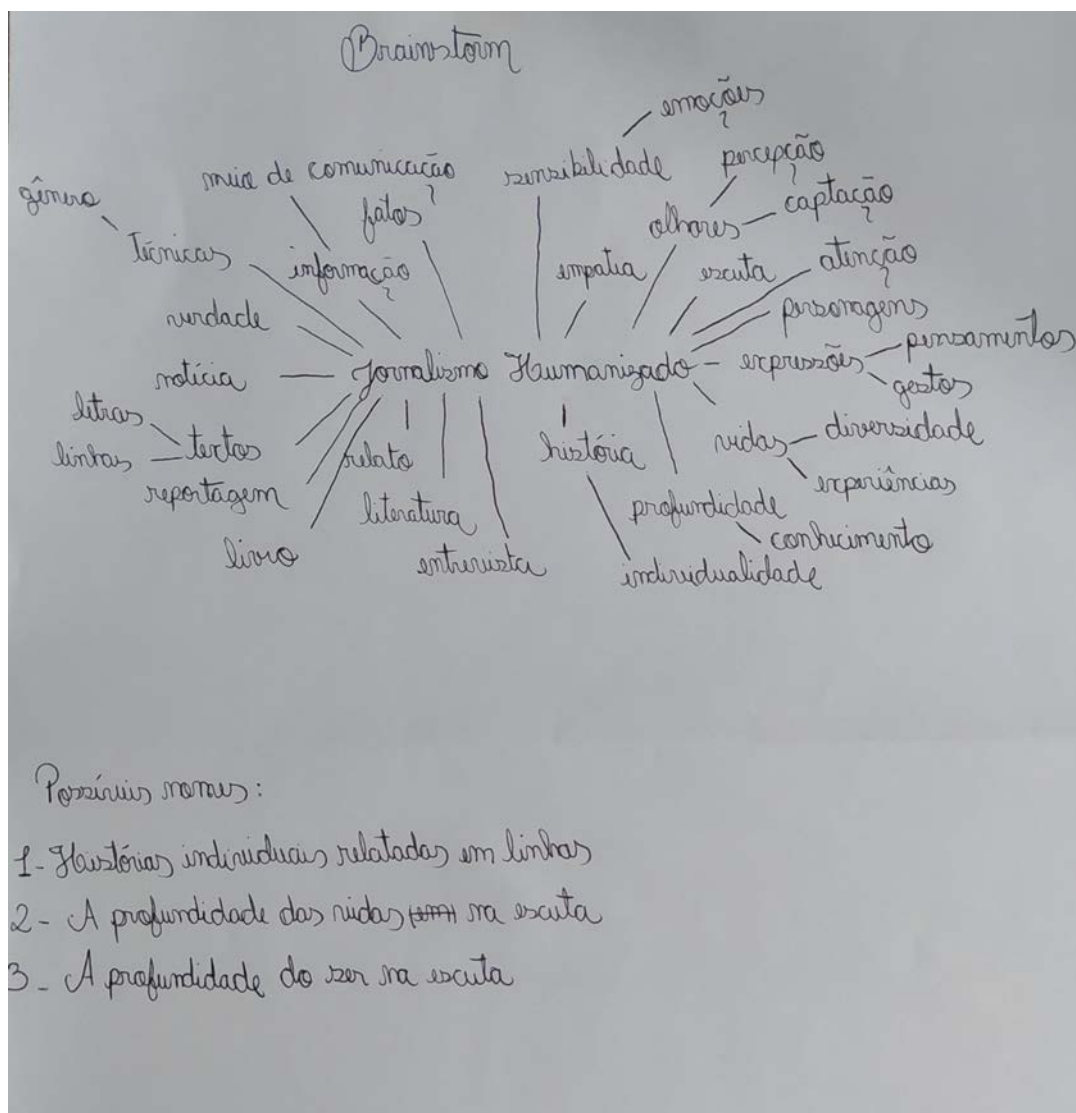 Brainstorm
emoções
meio de comunicação
sensibilidade
percepção
gênero
fatos
olhares
captação
Técnicas
informação
empatia
escuta
atenção
verdade
personagens
notícia
Jornalismo Humanizado
expressões
pensamentos
gestos
letras
linhas
textos
relato
história
vidas
diversidade
reportagem
experiências
literatura
profundidade
livro
entrevista
conhecimento
individualidade
Possíveis nomes:
1- Histórias individuais relatadas em linhas
2- A profundidade das vidas na escuta
3- A profundidade do ser na escuta